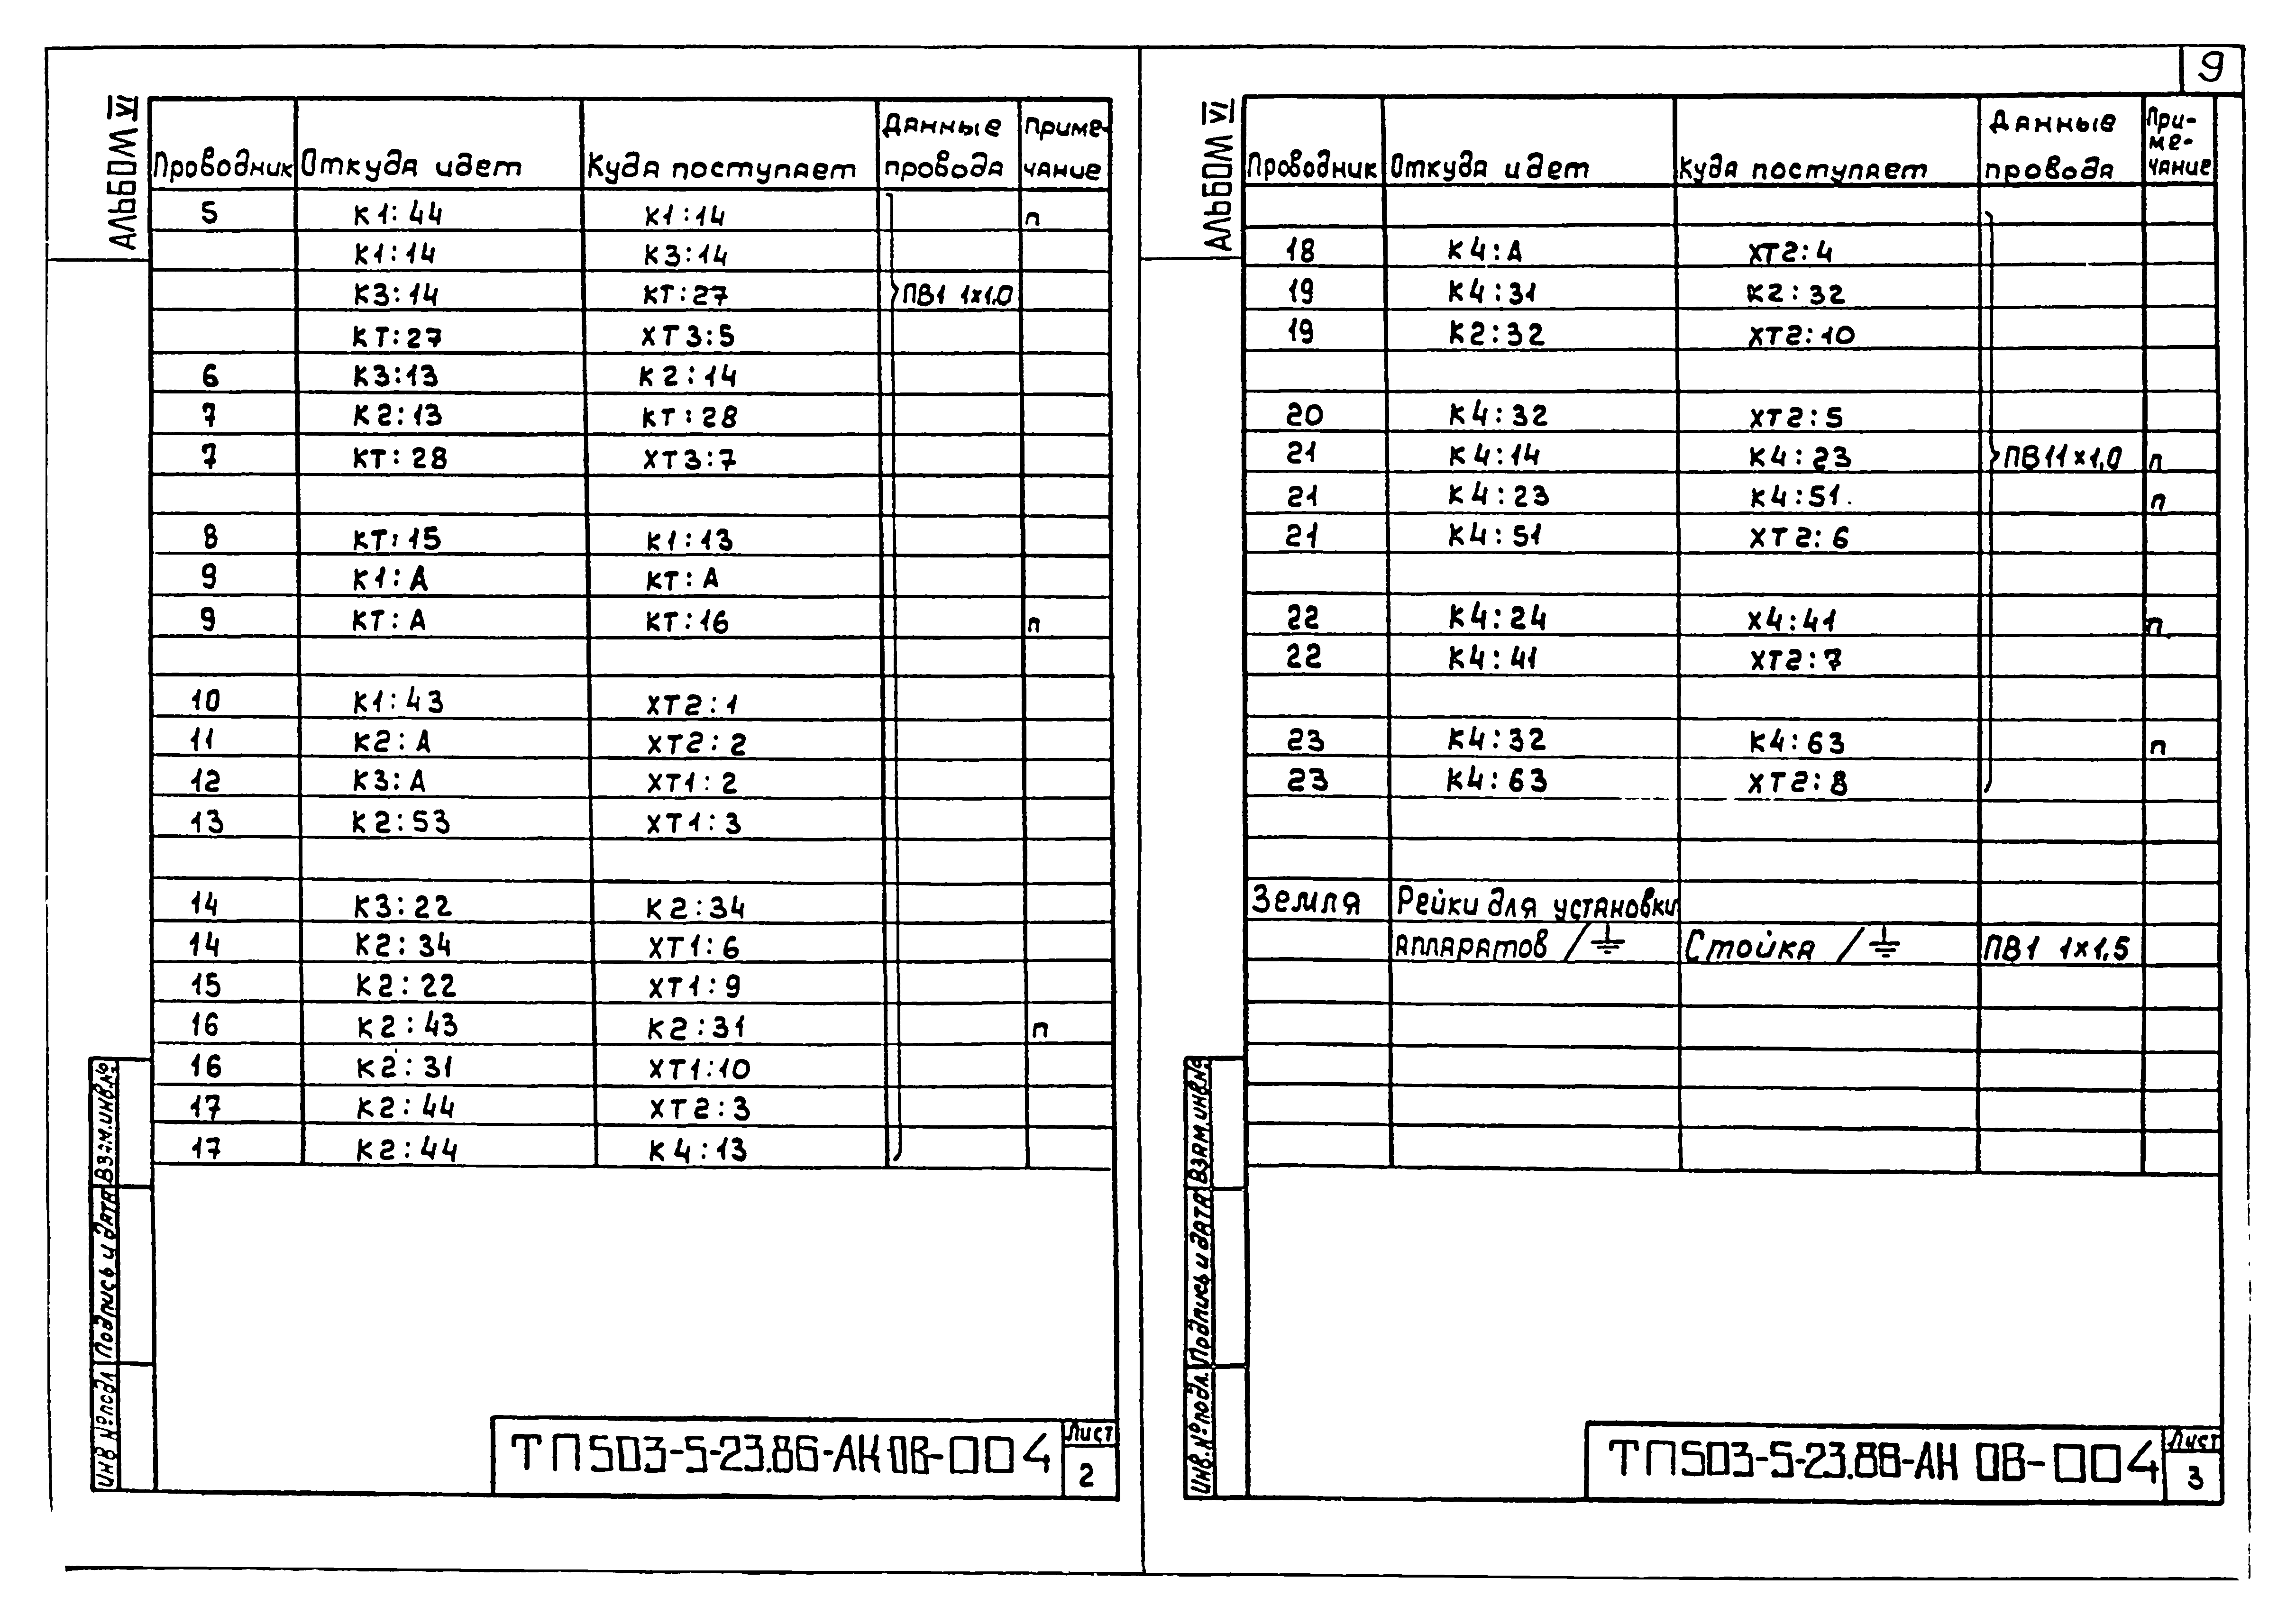 9
АЛЬБОМ VI
Проводник Откуда идет Куда поступает Данные провода Примечание
5 К1:44 К1:14 п
К1:14 К3:14
К3:14 КТ:27 ПВ1 1х1,0
КТ:27 ХТ3:5
6 К3:13 К2:14
7 К2:13 КТ:28
7 КТ:28 ХТ3:7
8 КТ:15 К1:13
9 К1:А КТ:А
9 КТ:А КТ:16 п
10 К1:43 ХТ2:1
11 К2:А ХТ2:2
12 К3:А ХТ1:2
13 К2:53 ХТ1:3
14 К3:22 К2:34
14 К2:34 ХТ1:6
15 К2:22 ХТ1:9
16 К2:43 К2:31 п
16 К2:31 ХТ1:10
17 К2:44 ХТ2:3
17 К2:44 К4:13
ИНВ № подл Подпись и дата Взам.инв.№
ТП503-5-23.86-АН ОВ-004
Лист
2
АЛЬБОМ VI
Проводник Откуда идет Куда поступает Данные провода При-ме-чание
18 К4:А ХТ2:4
19 К4:31 К2:32
19 К2:32 ХТ2:10
20 К4:32 ХТ2:5
21 К4:14 К4:23 ПВ1 1х1,0 п
21 К4:23 К4:51 п
21 К4:51 ХТ2:6
22 К4:24 Х4:41 п
22 К4:41 ХТ2:7
23 К4:32 К4:63 п
23 К4:63 ХТ2:8
Земля Рейки для установки
аппаратов / ⏚ Стойка / ⏚ ПВ1 1х1,5
Инв.№ подл. Подпись и дата Взам.инв.№
ТП503-5-23.88-АН ОВ-004
Лист
3